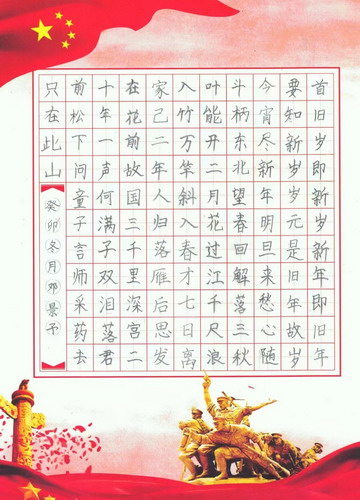 首旧岁即新岁新年即旧年
要知新岁岁元是旧年故岁
今宵尽新年明旦来愁心随
斗柄东北望春回解落三秋
叶能开二月花过江千尺浪
入竹万竿斜入春才七日离
家已二年人归落雁后思发
在花前故国三千里深宫二
十年一声何满子双泪落君
前松下问童子言师采药去
只在此山
癸卯冬月邓景予